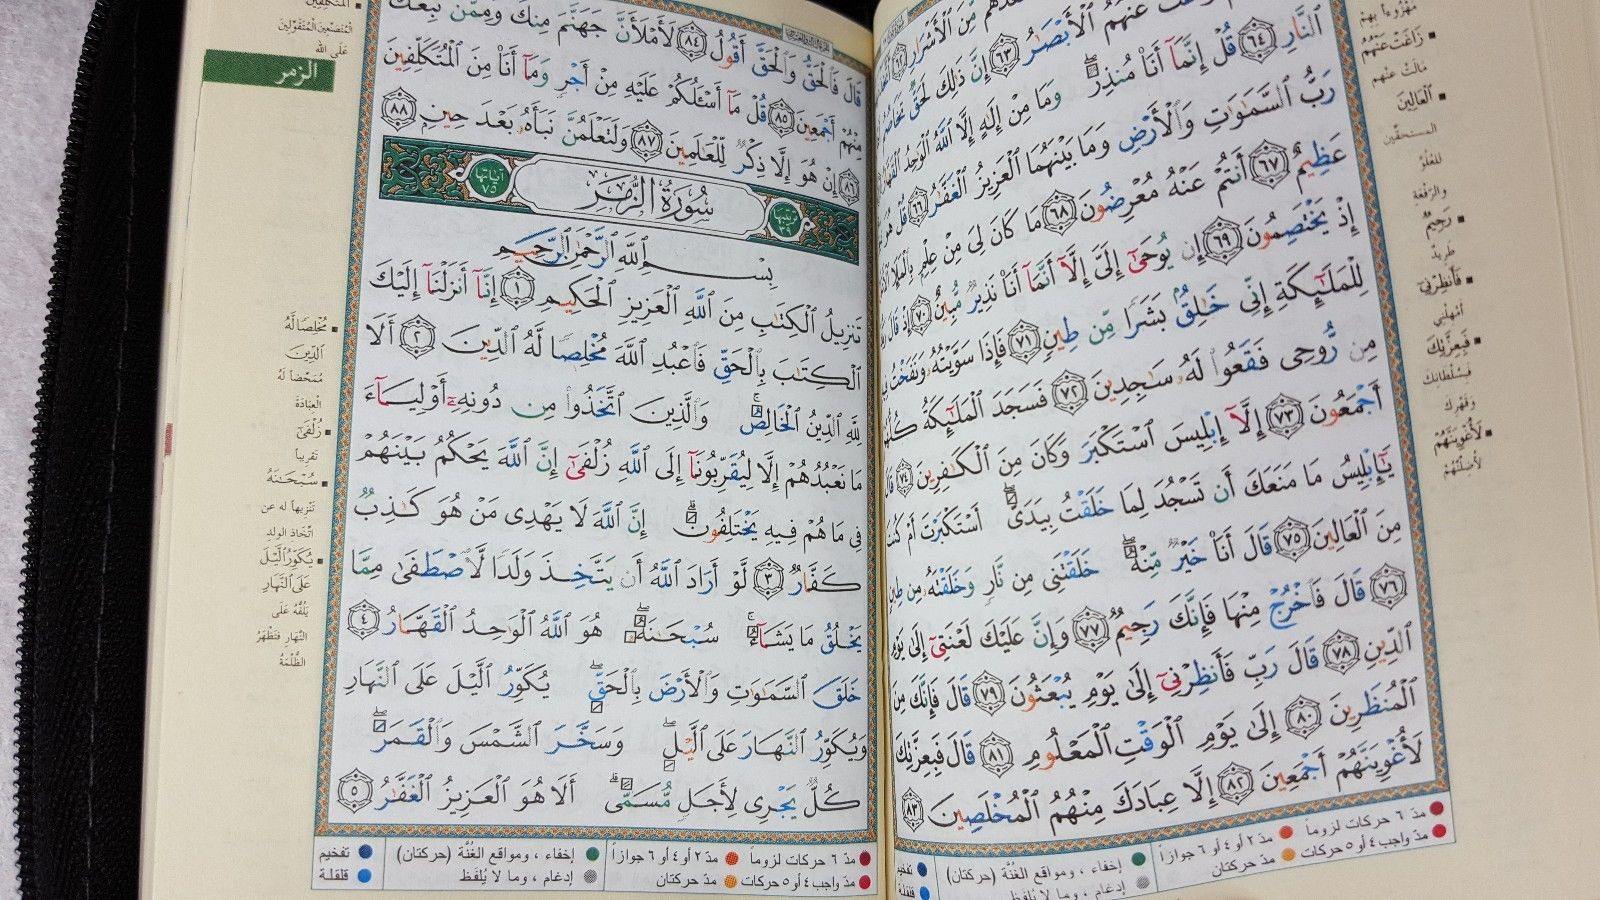 النَّارِ ٦٤ قُلْ إِنَّمَآ أَنَا۠ مُنذِرٌ وَمَا مِنْ إِلَٰهٍ إِلَّا ٱللَّهُ ٱلْوَٰحِدُ ٱلْقَهَّارُ
رَبُّ ٱلسَّمَٰوَٰتِ وَٱلْأَرْضِ وَمَا بَيْنَهُمَا ٱلْعَزِيزُ ٱلْغَفَّٰرُ ٦٦ قُلْ هُوَ
عَظِيمٌ ٦٧ أَنتُمْ عَنْهُ مُعْرِضُونَ ٦٨ مَا كَانَ لِىَ مِنْ عِلْمٍۭ بِٱلْمَلَإِ
إِذْ يَخْتَصِمُونَ ٦٩ إِن يُوحَىٰٓ إِلَىَّ إِلَّآ أَنَّمَآ أَنَا۠ نَذِيرٌ مُّبِينٌ ٧٠ إِذْ قَالَ
لِلْمَلَٰٓئِكَةِ إِنِّى خَٰلِقٌۢ بَشَرًا مِّن طِينٍ ٧١ فَإِذَا سَوَّيْتُهُۥ وَنَفَخْتُ
مِن رُّوحِى فَقَعُوا۟ لَهُۥ سَٰجِدِينَ ٧٢ فَسَجَدَ ٱلْمَلَٰٓئِكَةُ
أَجْمَعُونَ ٧٣ إِلَّآ إِبْلِيسَ ٱسْتَكْبَرَ وَكَانَ مِنَ ٱلْكَٰفِرِينَ ٧٤
يَٰٓإِبْلِيسُ مَا مَنَعَكَ أَن تَسْجُدَ لِمَا خَلَقْتُ بِيَدَىَّ أَسْتَكْبَرْتَ أَمْ كُنتَ
مِنَ ٱلْعَالِينَ ٧٥ قَالَ أَنَا۠ خَيْرٌ مِّنْهُ خَلَقْتَنِى مِن نَّارٍ وَخَلَقْتَهُۥ مِن طِينٍ
٧٦ قَالَ فَٱخْرُجْ مِنْهَا فَإِنَّكَ رَجِيمٌ ٧٧ وَإِنَّ عَلَيْكَ لَعْنَتِىٓ إِلَىٰ يَوْمِ
ٱلدِّينِ ٧٨ قَالَ رَبِّ فَأَنظِرْنِىٓ إِلَىٰ يَوْمِ يُبْعَثُونَ ٧٩ قَالَ فَإِنَّكَ مِنَ
ٱلْمُنظَرِينَ ٨٠ إِلَىٰ يَوْمِ ٱلْوَقْتِ ٱلْمَعْلُومِ ٨١ قَالَ فَبِعِزَّتِكَ
لَأُغْوِيَنَّهُمْ أَجْمَعِينَ ٨٢ إِلَّا عِبَادَكَ مِنْهُمُ ٱلْمُخْلَصِينَ ٨٣
زَاغَتْ عَنْهُمُ
مَالَتْ عنهم
ٱلْعَالِينَ
المستحقّين
للعُلُوّ
والرّفْعَة
رَجِيمٌ
طريدٌ
فَأَنظِرْنِى
أمهِلْني
فَبِعِزَّتِكَ
فبسُلْطانك
وقَهْرِك
لَأُغْوِيَنَّهُمْ
لأضِلَّنّهُمْ
مدّ ٦ حركات لزوماً مدّ ٢ أو ٤ أو ٦ جوازاً إخفاء ، ومواقع الغُنَّة (حركتان)
مدّ واجب ٤ أو ٥ حركات مدّ حركتان إدغام ، وما لا يُلفَظ
الزمر
قَالَ فَٱلْحَقُّ وَٱلْحَقَّ أَقُولُ ٨٤ لَأَمْلَأَنَّ جَهَنَّمَ مِنكَ وَمِمَّن تَبِعَكَ
مِنْهُمْ أَجْمَعِينَ ٨٥ قُلْ مَآ أَسْـَٔلُكُمْ عَلَيْهِ مِنْ أَجْرٍ وَمَآ أَنَا۠ مِنَ ٱلْمُتَكَلِّفِينَ
٨٦ إِنْ هُوَ إِلَّا ذِكْرٌ لِّلْعَٰلَمِينَ ٨٧ وَلَتَعْلَمُنَّ نَبَأَهُۥ بَعْدَ حِينٍۭ ٨٨
ترتيبها ٣٩ سُورَةُ ٱلزُّمَر آياتها ٧٥
بِسْمِ ٱللَّهِ ٱلرَّحْمَٰنِ ٱلرَّحِيمِ
تَنزِيلُ ٱلْكِتَٰبِ مِنَ ٱللَّهِ ٱلْعَزِيزِ ٱلْحَكِيمِ ١ إِنَّآ أَنزَلْنَآ إِلَيْكَ
ٱلْكِتَٰبَ بِٱلْحَقِّ فَٱعْبُدِ ٱللَّهَ مُخْلِصًا لَّهُ ٱلدِّينَ ٢ أَلَا
لِلَّهِ ٱلدِّينُ ٱلْخَالِصُ وَٱلَّذِينَ ٱتَّخَذُوا۟ مِن دُونِهِۦٓ أَوْلِيَآءَ
مَا نَعْبُدُهُمْ إِلَّا لِيُقَرِّبُونَآ إِلَى ٱللَّهِ زُلْفَىٰٓ إِنَّ ٱللَّهَ يَحْكُمُ بَيْنَهُمْ
فِى مَا هُمْ فِيهِ يَخْتَلِفُونَ إِنَّ ٱللَّهَ لَا يَهْدِى مَنْ هُوَ كَٰذِبٌ
كَفَّارٌ ٣ لَّوْ أَرَادَ ٱللَّهُ أَن يَتَّخِذَ وَلَدًا لَّٱصْطَفَىٰ مِمَّا
يَخْلُقُ مَا يَشَآءُ سُبْحَٰنَهُۥ هُوَ ٱللَّهُ ٱلْوَٰحِدُ ٱلْقَهَّارُ ٤
خَلَقَ ٱلسَّمَٰوَٰتِ وَٱلْأَرْضَ بِٱلْحَقِّ يُكَوِّرُ ٱلَّيْلَ عَلَى ٱلنَّهَارِ
وَيُكَوِّرُ ٱلنَّهَارَ عَلَى ٱلَّيْلِ وَسَخَّرَ ٱلشَّمْسَ وَٱلْقَمَرَ
كُلٌّ يَجْرِى لِأَجَلٍ مُّسَمًّى أَلَا هُوَ ٱلْعَزِيزُ ٱلْغَفَّٰرُ ٥
المُتَكَلِّفِينَ
المُتَصَنِّعين المُتَقَوِّلين
عَلَى الله
مُخْلِصًا لَّهُ
ٱلدِّينَ
مُمَحِّضاً لَهُ
العِبَادَةَ
زُلْفَىٰ
تقريباً
سُبْحَٰنَهُ
تَنْزيهاً له عن
اتّخاذ الولد
يُكَوِّرُ ٱلَّيْلَ
عَلَى ٱلنَّهَارِ
يَلُفُّهُ عَلَى
النَّهَارِ فَتَظْهَرُ
الظُّلْمَةُ
مدّ ٦ حركات لزوماً مدّ ٢ أو ٤ أو ٦ جوازاً إخفاء ، ومواقع الغُنَّة (حركتان) تفخيم
مدّ واجب ٤ أو ٥ حركات مدّ حركتان إدغام ، وما لا يُلفَظ قلقلة